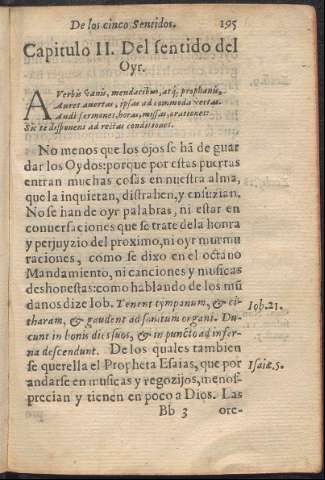 De los cinco Sentidos. 195
Capitulo II. Del sentido del
Oyr.
A Verbis vanis, mendacibus, atq; prophanis,
Aures auertas, ipsas ad commoda vertas.
Audi sermones, horas, missas, orationes:
Sic te disponens ad rectas conditiones.
No menos que los ojos se hã de guar
dar los Oydos: porque por estas puertas
entran muchas cosas en nuestra alma,
que la inquietan, distrahen, y ensuzian.
No se han de oyr palabras, ni estar en
conuersaciones que se trate de la honra
y perjuyzio del proximo, ni oyr murmu
raciones, como se dixo en el octauo
Mandamiento, ni canciones y musicas
deshonestas: como hablando de los mũ
danos dize Iob. Tenent tympanum, & ci-
tharam, & gaudent ad sonitum organi. Du-
cunt in bonis dies suos, & in puncto ad infer-
na descendunt. De los quales tambien
se querella el Propheta Esaias, que por
andarse en musicas y regozijos, menos-
precian y tienen en poco a Dios. Las
Iob. 21.
Isaiæ. 5.
Bb 3 ore-